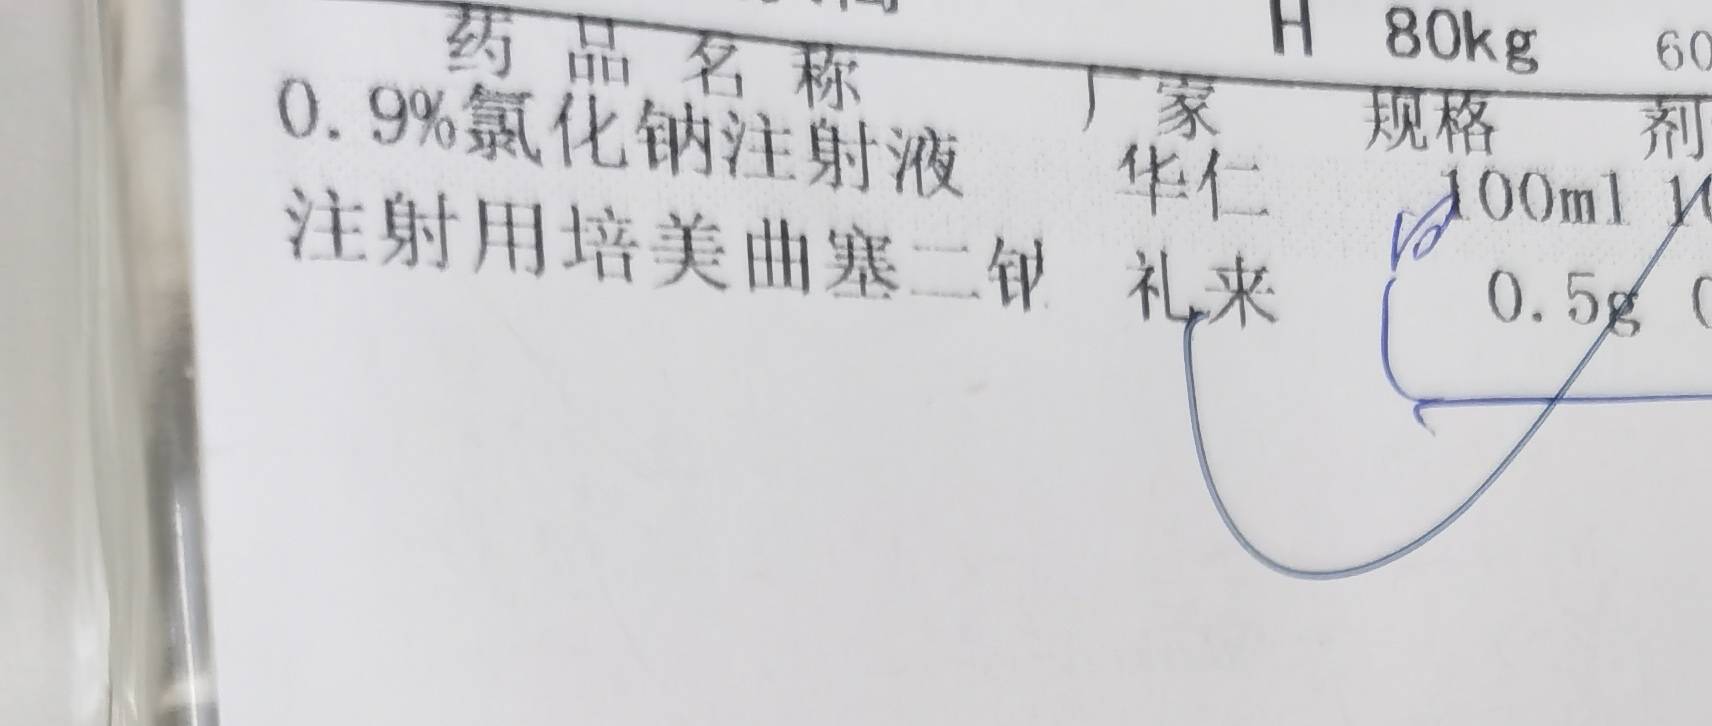 H 80kg 60
药品名称 厂家 规格 剂
0.9%氯化钠注射液 华仁 100ml 10
注射用培美曲塞二钠 礼来 0.5g 0